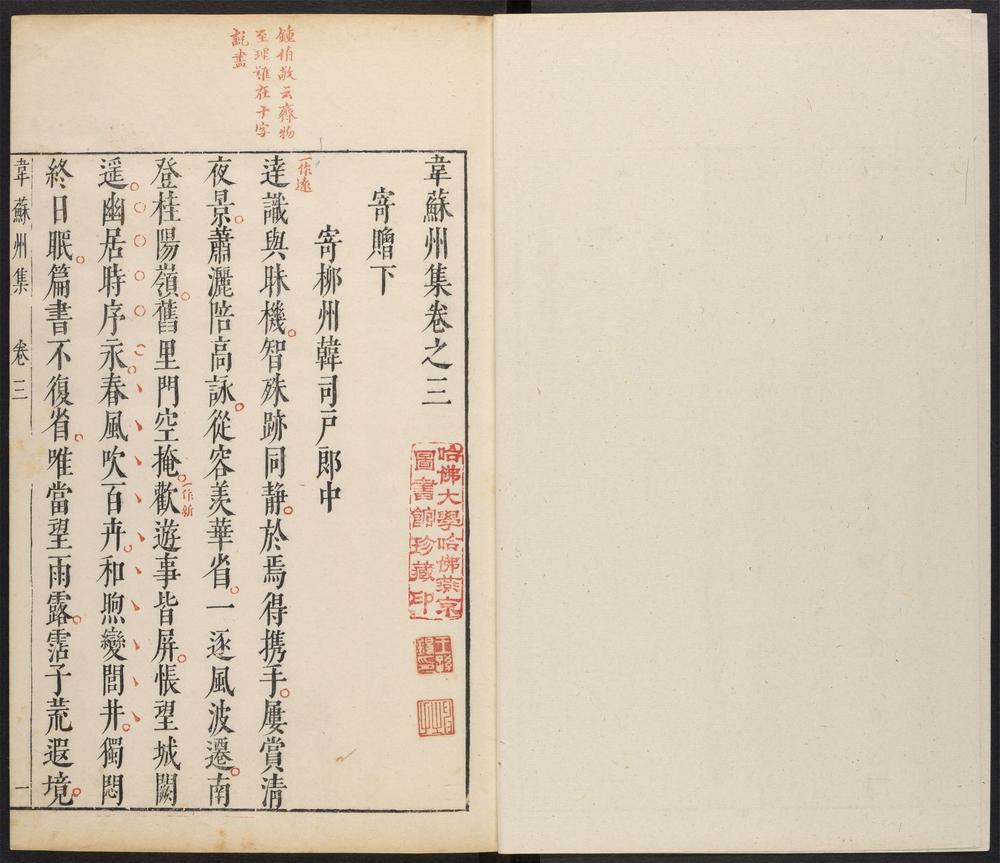 鍾伯敬云齊物
至理難在十字
說盡
韋蘇州集卷之三
哈佛大學哈佛燕京
圖書館珍藏印
寄贈下
寄柳州韓司戶郎中
一作遠
達識與昧機智殊跡同靜於焉得携手屢賞清
夜景蕭灑陪高詠從容羨華省一逐風波遷南
登桂陽嶺舊里門空掩歡遊事皆屏悵望城闕
一作新
遥幽居時序永春風吹百卉和煦變閭井獨悶
終日眠篇書不復省唯當望雨露霑子荒遐境
韋蘇州集 卷三 一